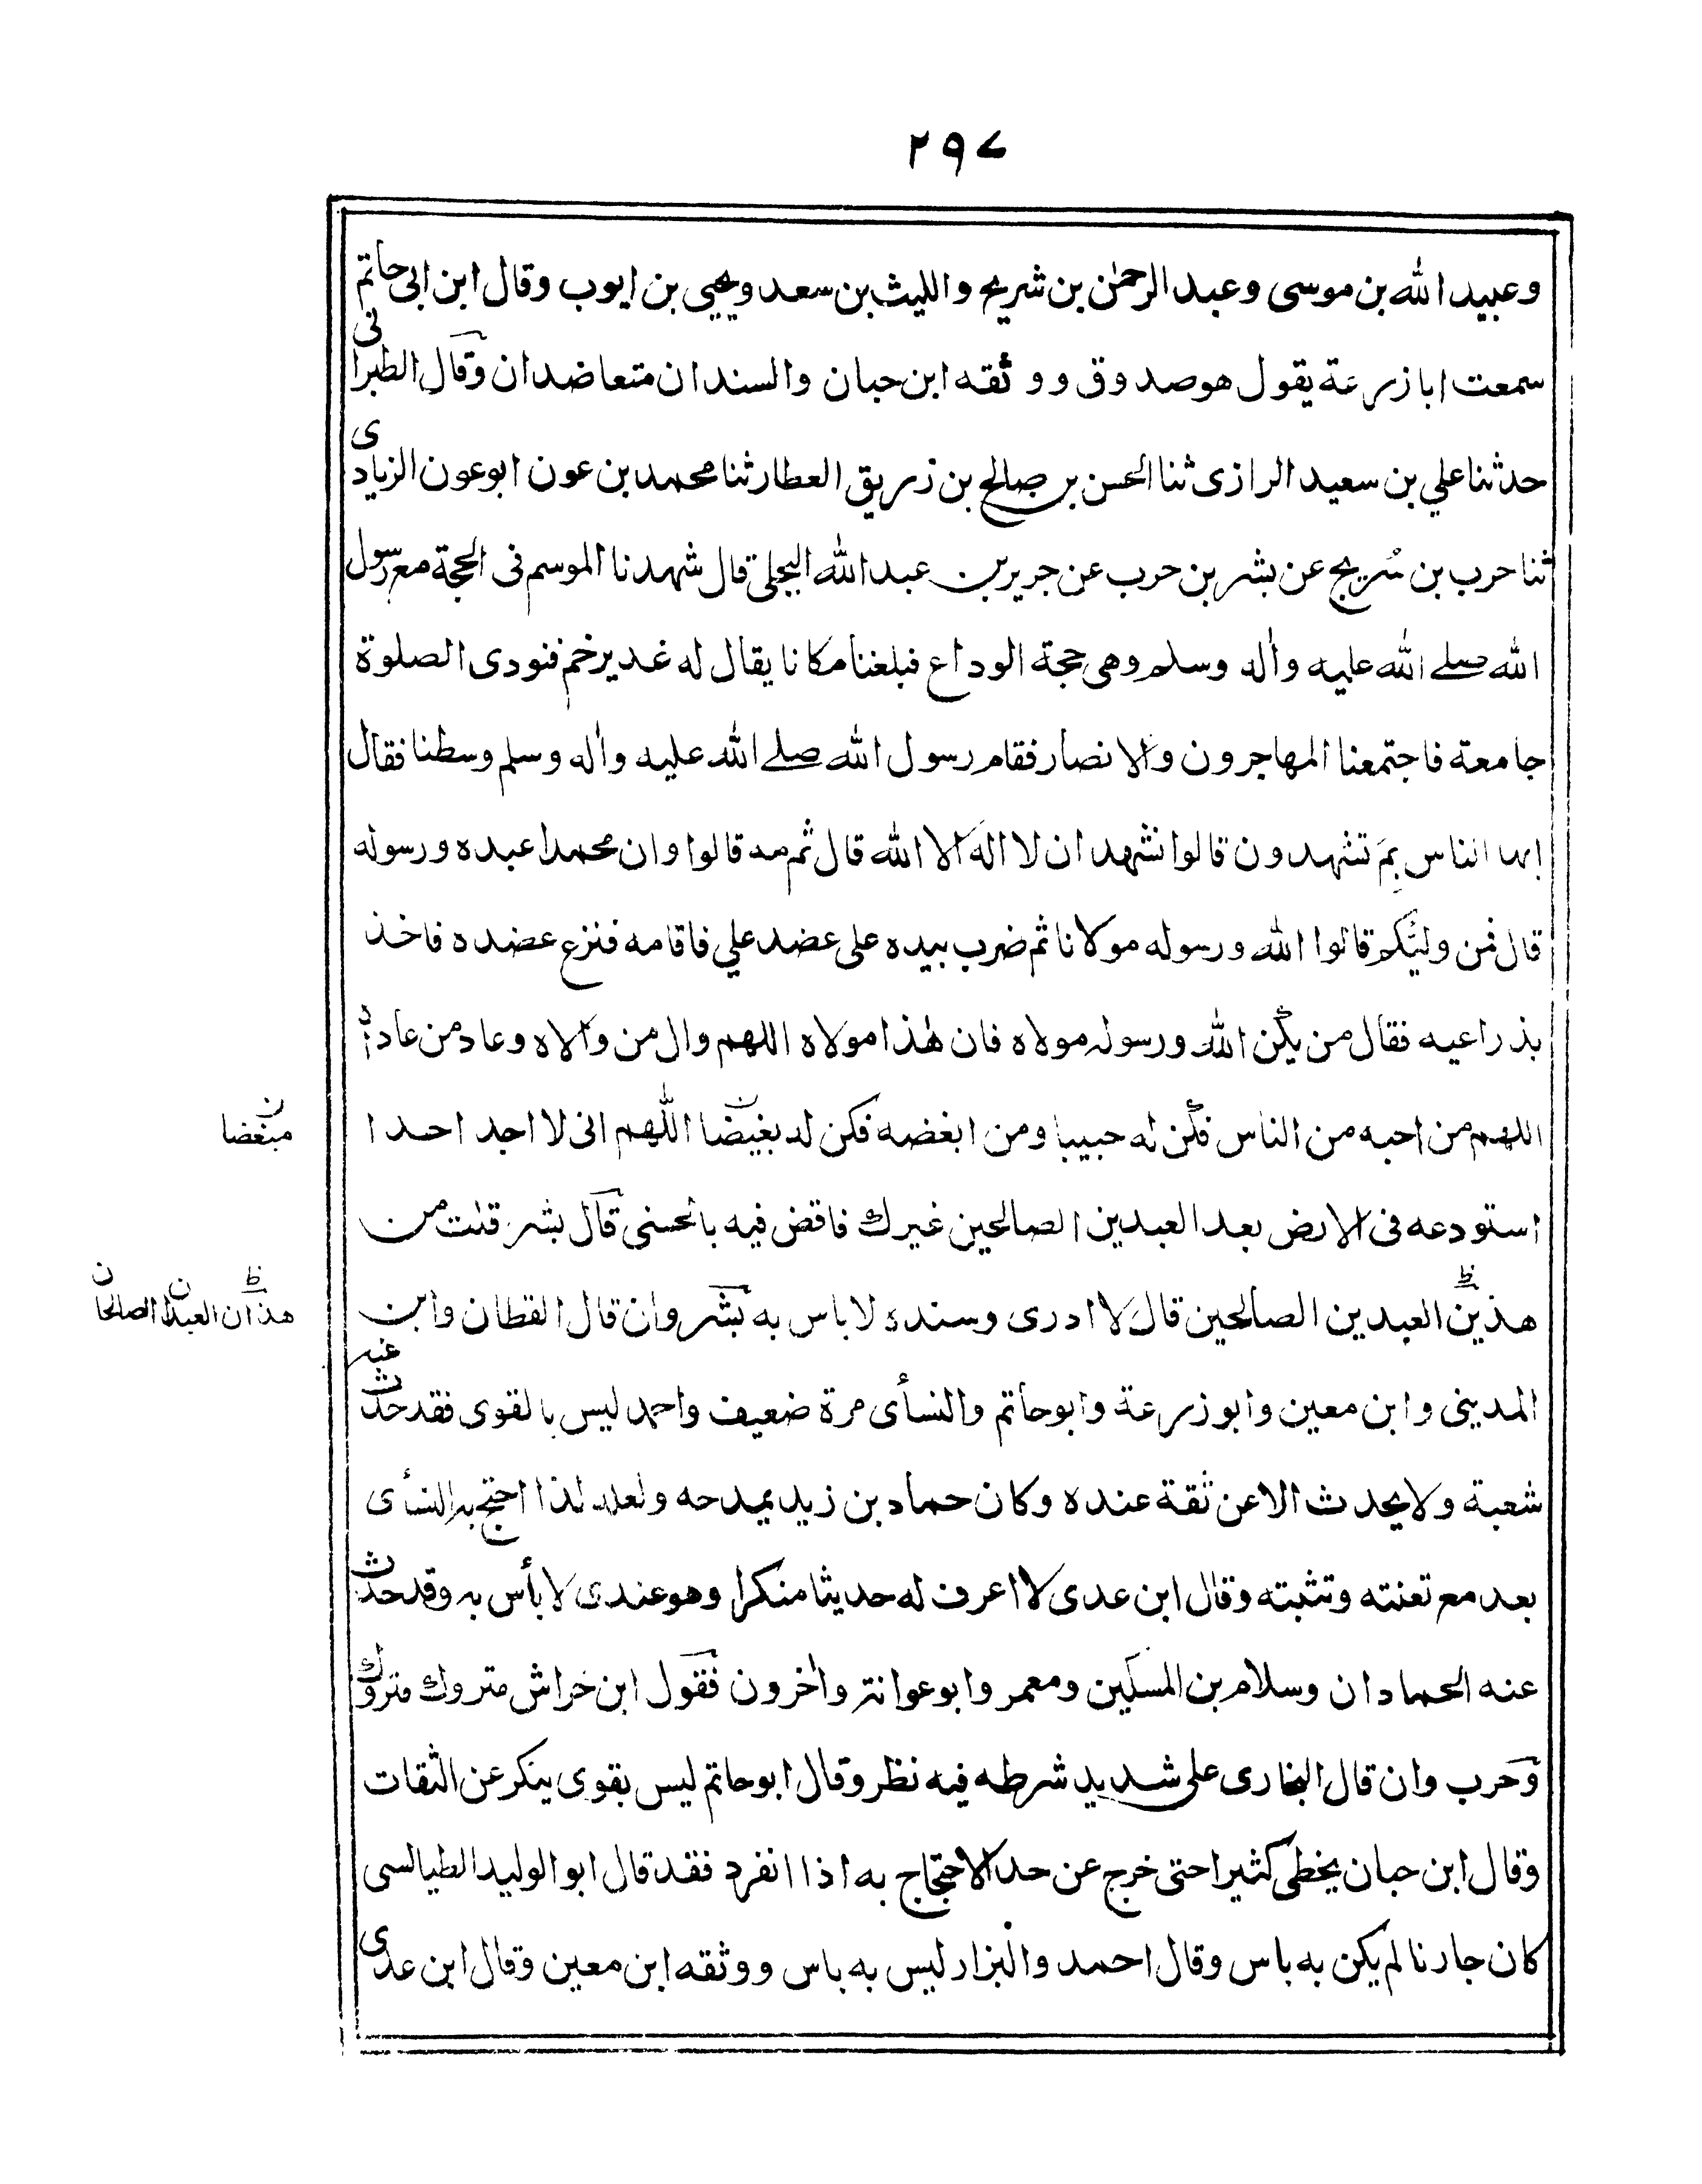 ٢٩٧
وعبيد الله بن موسى وعبد الرحمٰن بن شريح والليث بن سعد ويحيى بن ايوب وقال ابن ابى حاتم
سمعت ابا زرعة يقول هو صدوق ووثقه ابن حبان والسندان متعاضدان وقال الطبرانى
حدثنا علي بن سعيد الرازى ثنا الحسن بن صالح بن زريق العطار ثنا محمد بن عون ابو عون الزيادى
ثنا حرب بن سُريج عن بشر بن حرب عن جرير بن عبد الله البجلى قال شهدنا الموسم فى الحجة مع رسول
الله صلے الله عليه واٰله وسلم وهى حجة الوداع فبلغنا مكانا يقال له غدير خم فنودى الصلوة
جامعة فاجتمعنا المهاجرون والانصار فقام رسول الله صلے الله عليه واٰله وسلم وسطنا فقال
ايها الناس بِمَ تشهدون قالوا نشهد ان لا اله الا الله قال ثم مه قالوا وان محمدا عبده ورسوله
قال فمن وليّكم قالوا الله ورسوله مولانا ثم ضرب بيده على عضد علي فاقامه فنزع عضده فاخذ
بذراعيه فقال من يكن الله ورسوله مولاه فان هٰذا مولاه اللهم وال من والاه وعاد من عاداه
اللهم من احبه من الناس فكن له حبيبا ومن ابغضه فكن له بغيضا اللّٰهم انى لا اجد احدا
مبغضا ن
استودعه فى الارض بعد العبدين الصالحين غيرك فاقض فيه بالحسنى قال بشر قلت من
هذين العبدين الصالحين قال لا ادرى وسنده لا باس به بشر وان قال القطان وابن
هذان العبدان الصالحان
المدينى وابن معين وابو زرعة وابو حاتم والنسأى مرة ضعيف واحمد ليس بالقوى فقد حدث عنه
شعبة ولا يحدث الا عن ثقة عنده وكان حماد بن زيد يمدحه ولعله لذا احتج به النسأى
بعد مع تعنته وتثبته وقال ابن عدى لا اعرف له حديثا منكرا وهو عندى لا بأس به وقد حدث
عنه الحمادان وسلام بن المسكين ومعمر وابو عوانة واٰخرون فقول ابن خراش متروك متروك
وحرب وان قال البخارى على شديد شرطه فيه نظر وقال ابو حاتم ليس بقوى ينكر عن الثقات
وقال ابن حبان يخطى كثيرا حتى خرج عن حد الاحتجاج به اذا انفرد فقد قال ابو الوليد الطيالسى
كان جارنا لم يكن به باس وقال احمد والبزار ليس به باس ووثقه ابن معين وقال ابن عدى